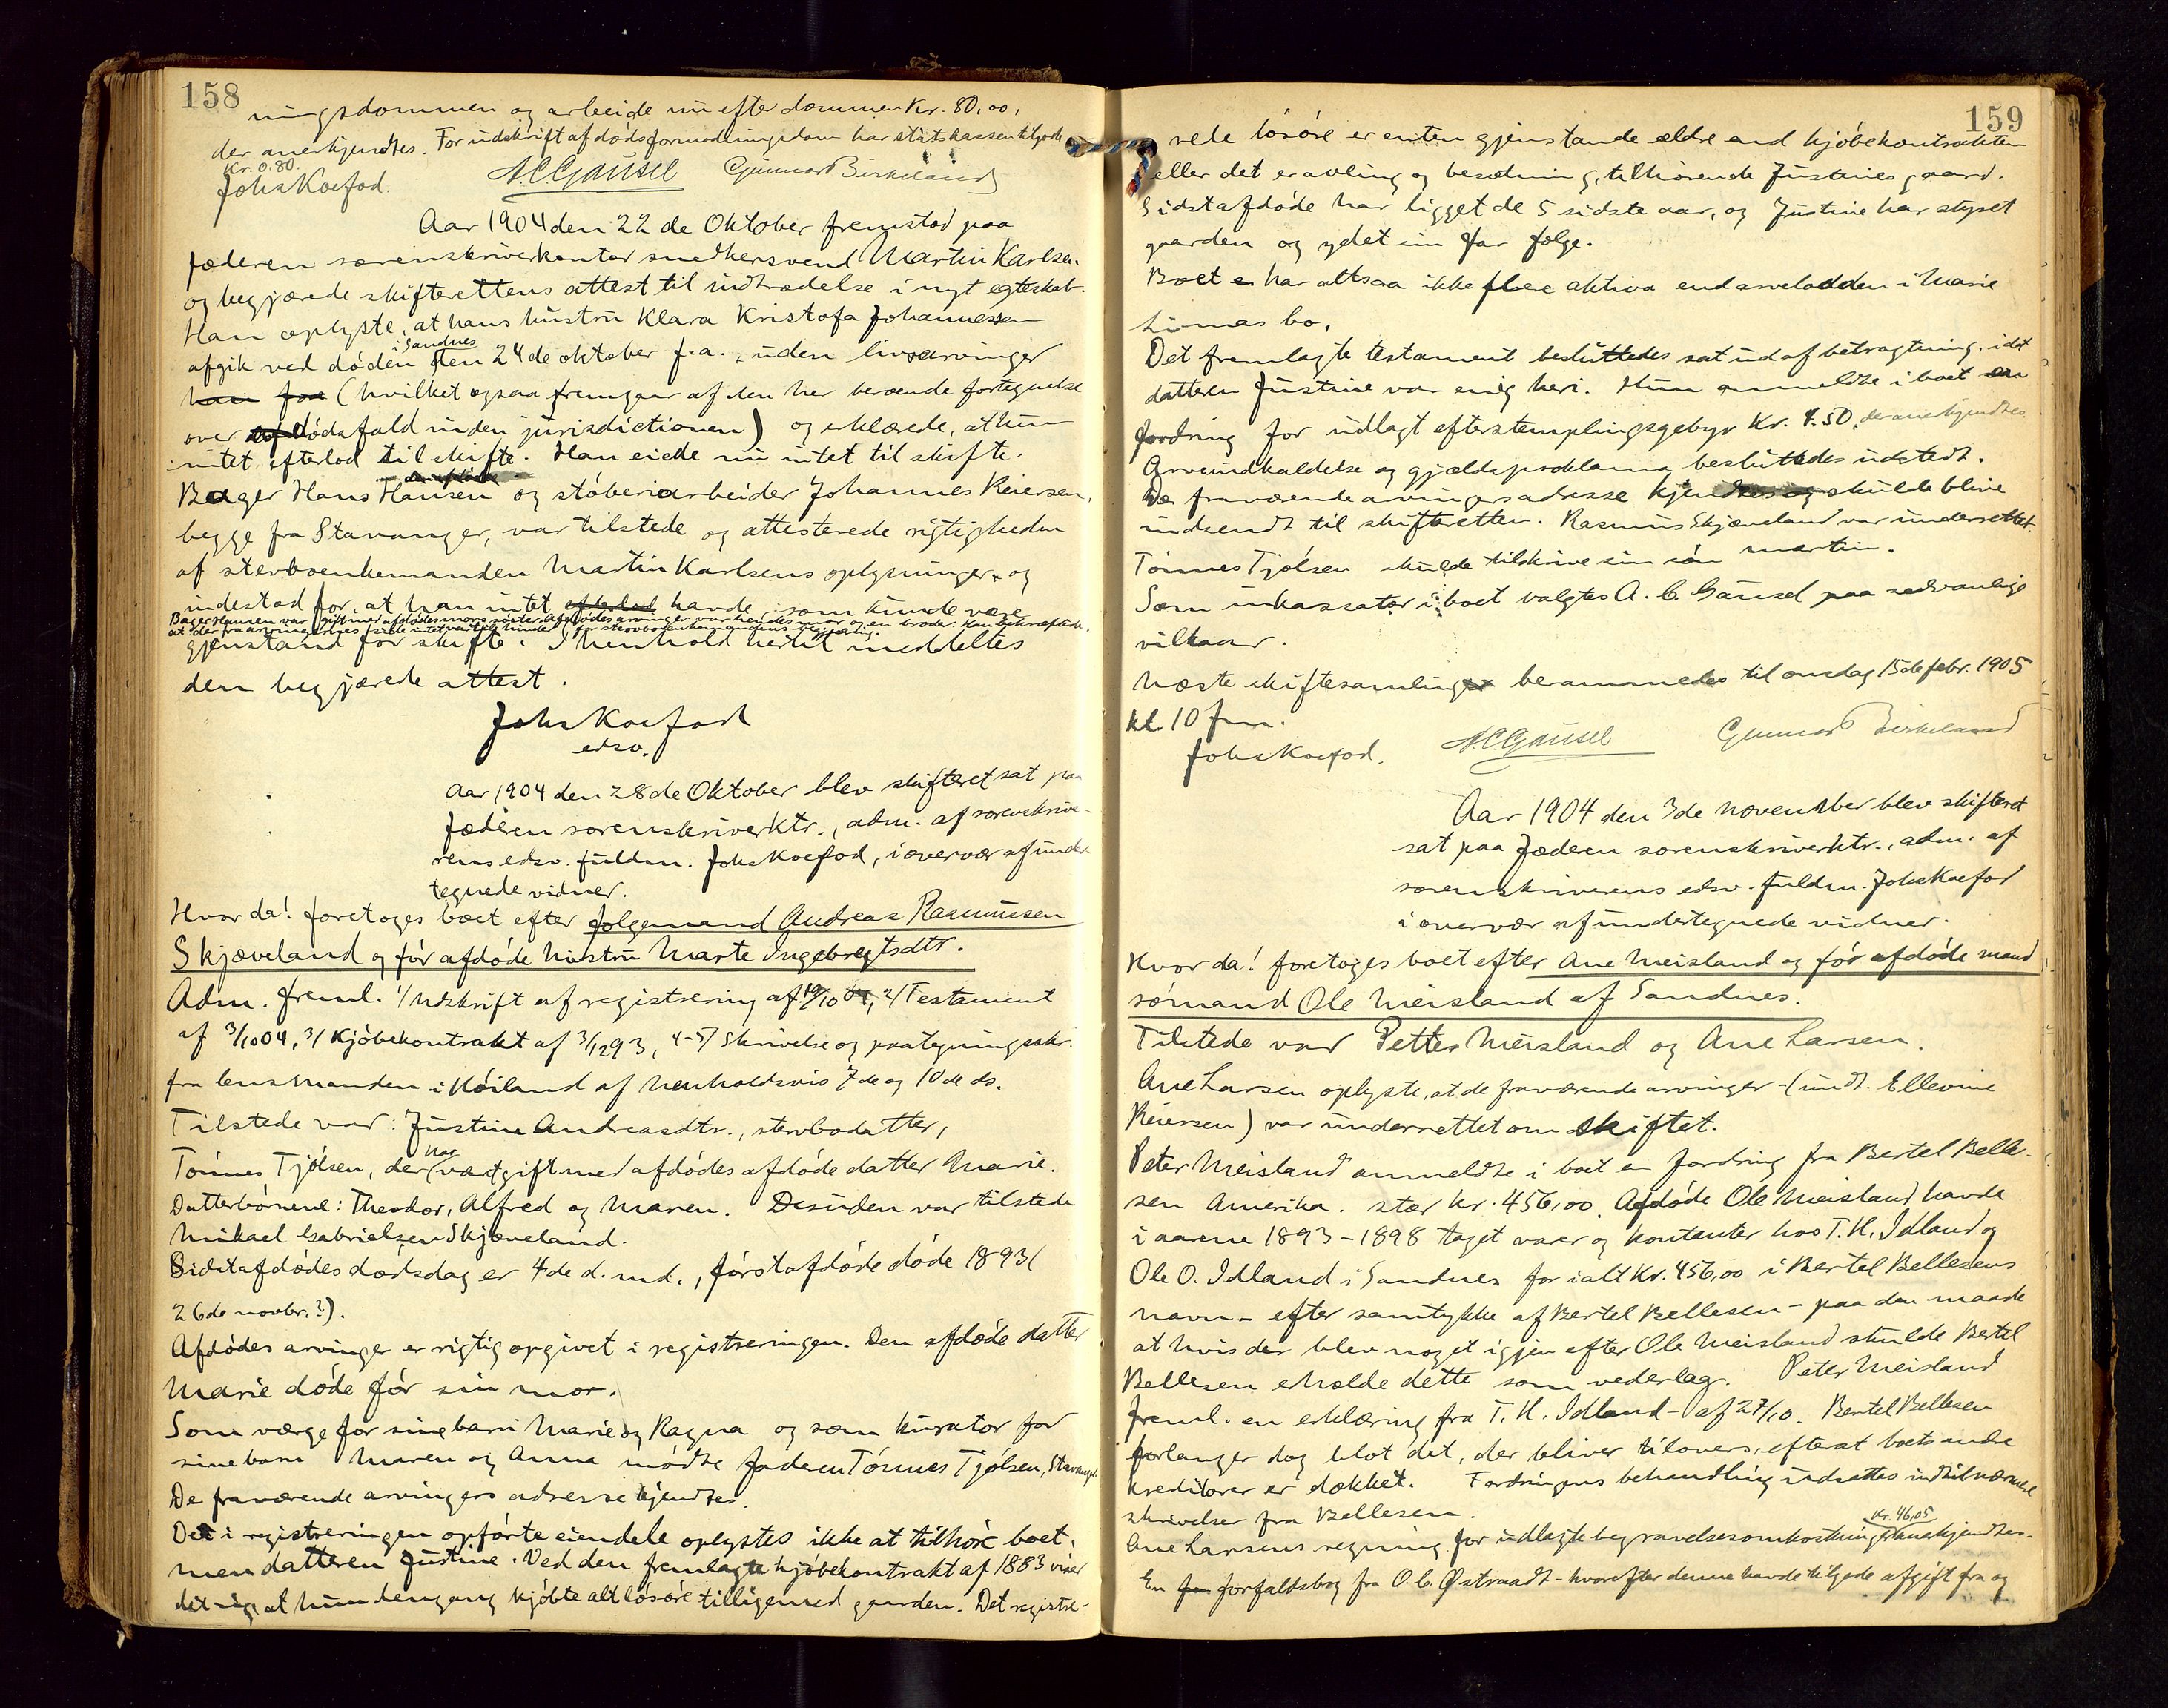 158
ningsdommen og arbeide nu efter dommen Kr. 80,00,
der anerkjendtes. For udskrift af dødsformodningsdom har statskassen tilgode
Kr. 0.80.
Johs Koefod. A.C. Gausel Gunnar Birkeland
Aar 1904 den 22 de Oktober fremstod paa
Jæderen sorenskriverkontor snedkersvend Martin Karlsen
og begjærede skifterettens attest til indtrædelse i nyt egteskab.
Han oplyste, at hans hustru Klara Kristofa Johannessen
i Sandnes
afgik ved døden den 24 de oktober f.a., uden livsarvinger
(hvilket ogsaa fremgaar af den her beroende fortegnelse
over dødsfald inden jurisdictionen) og erklærede, at hun
intet efterlod til skifte. Han eiede nu intet til skifte.
Bager Hans Hansen og støberiarbeider Johannes Reiersen,
begge fra Stavanger, var tilstede og attesterede rigtigheden
af stervboenkemanden Martin Karlsens oplysninger og
indestod for, at han intet efterlod havde, som kunde være
Bager Hansen var gift med afdødes mors søster. Afdødes arvinger var hendes mor og en broder. Han bekræftede,
at der fra arvingernes side intet var til hinder for stervboenkemandens begjæring.
gjenstand for skifte. I henhold hertil meddeltes
den begjærede attest.
Johs Koefod
edsv.
Aar 1904 den 28 de Oktober blev skifteret sat paa
Jæderen sorenskriverktr., adm. af sorenskrive-
rens edsv. fuldm. Johs Koefod, i overvær af under-
tegnede vidner.
Hvor da! foretoges boet efter følgemand Andreas Rasmussen
Skjæveland og før afdøde hustru Marte Ingebregtsdtr.
Adm. freml. 1/ Udskrift af registrering af 19/10 04, 2/ Testament
af 3/10 04, 3/ Kjøbekontrakt af 3/12 93, 4-5/ Skrivelse og paategningsskr.
fra lensmanden i Høiland af henholdsvis 7de og 10de ds.
Tilstede var: Justine Andreasdtr., stervbodatter,
har
Tønnes Tjølsen, der været gift med afdødes afdøde datter Marie.
Datterbørnene: Theodor, Alfred og Maren. Desuden var tilstede
Mikael Gabrielsen Skjæveland.
Sidstafdødes dødsdag er 4de d. md., førstafdøde døde 1893 (
26de novbr.?).
Afdødes arvinger er rigtig opgivet i registreringen. Den afdøde datter
Marie døde før sin mor.
Som værge for sine barn Marie og Ragna og som kurator for
sine barn Maren og Anna mødte faderen Tønnes Tjølsen, Stavanger.
De fraværende arvingers adresse kjendtes.
De i registreringen opførte eiendele oplystes ikke at tilhøre boet,
men datteren Justine. Ved den fremlagte kjøbekontrakt af 1883 viser
det sig, at hun dengang kjøbte alt løsøre tilligemed gaarden. Det registre-
159
rede løsøre er enten gjenstande ældre end kjøbekontrakten
eller det er avling og besætning, tilhørende Justines gaard.
Sidstafdøde har ligget de 5 sidste aar, og Justine har styret
gaarden og ydet sin far følge.
Boet har altsaa ikke flere aktiva end arvelodden i Marie
Limas bo.
Det fremlagte testament besluttedes sat ud af betragtning, idet
datteren Justine var enig heri. Hun anmeldte i boet en
fordring for udlagt efterstemplingsgebyr Kr. 4.50, der anerkjendtes
Arveindkaldelse og gjældsproklama besluttedes udstedt.
De fraværende arvingers adresse kjendtes og skulde blive
indsendt til skifteretten. Rasmus Skjæveland var underrettet.
Tønnes Tjølsen skulde tilskrive sin søn Martin.
Som inkassator i boet valgtes A. C. Gausel paa sedvanlige
vilkaar.
Næste skiftesamling berammedes til onsdag 15de febr. 1905
kl. 10 fm.
Johs Koefod. A.C. Gausel Gunnar Birkeland
Aar 1904 den 3de november blev skifteret
sat paa Jæderen sorenskriverktr., adm. af
sorenskriverens edsv. fuldm. Johs Koefod
i overvær af undertegnede vidner.
Hvor da! foretoges boet efter Ane Meisland og før afdøde mand
sømand Ole Meisland af Sandnes.
Tilstede var Petter Meisland og Ane Larsen.
Ane Larsen oplyste, at de fraværende arvinger - (undt. Ellevine
Reiersen) var underrettet om skiftet.
Peter Meisland anmeldte i boet en fordring fra Bertel Belle-
sen Amerika. stor kr. 456,00. Afdøde Ole Meisland havde
i aarene 1893-1898 taget varer og kontanter hos T. H. Idland og
Ole O. Idland i Sandnes for ialt Kr. 456,00 i Bertel Bellesens
navn - efter samtykke af Bertel Bellesen - paa den maade
at hvis der blev noget igjen efter Ole Meisland skulde Bertel
Bellesen erholde dette som vederlag. Peter Meisland
freml. en erklæring fra T. H. Idland - af 27/10. Bertel Bellesen
forlanger dog blot det, der bliver tilovers, efterat boets andre
kreditorer er dækket. Fordringens behandling udsattes indtil nærmere
skrivelser fra Bellesen.
Kr. 46,05
Ane Larsens regning for udlagte begravelsesomkostninger anerkjendtes.
En forfaldsbog fra O. C. Østraadt - hvorefter denne havde tilgode afgift fra og